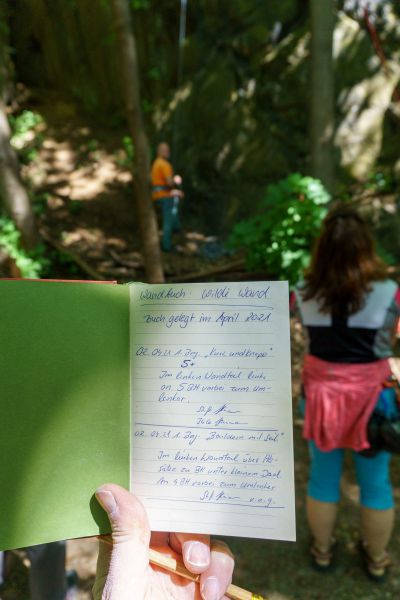 Wandbuch: Wilde Wand
Buch gelegt im April 2021
02.04.21 1. Beg. „Kurz und knapp"
5+
Im linken Wandteil links
an 5 BH vorbei zum Um-
lenker.
02.04.21 1. Beg. „Bouldern mit Seil"
Im linken Wandteil über Ab-
sätze zu BH unter kleinem Dach
An 4 BH vorbei zum Umlenker
v.o.g.